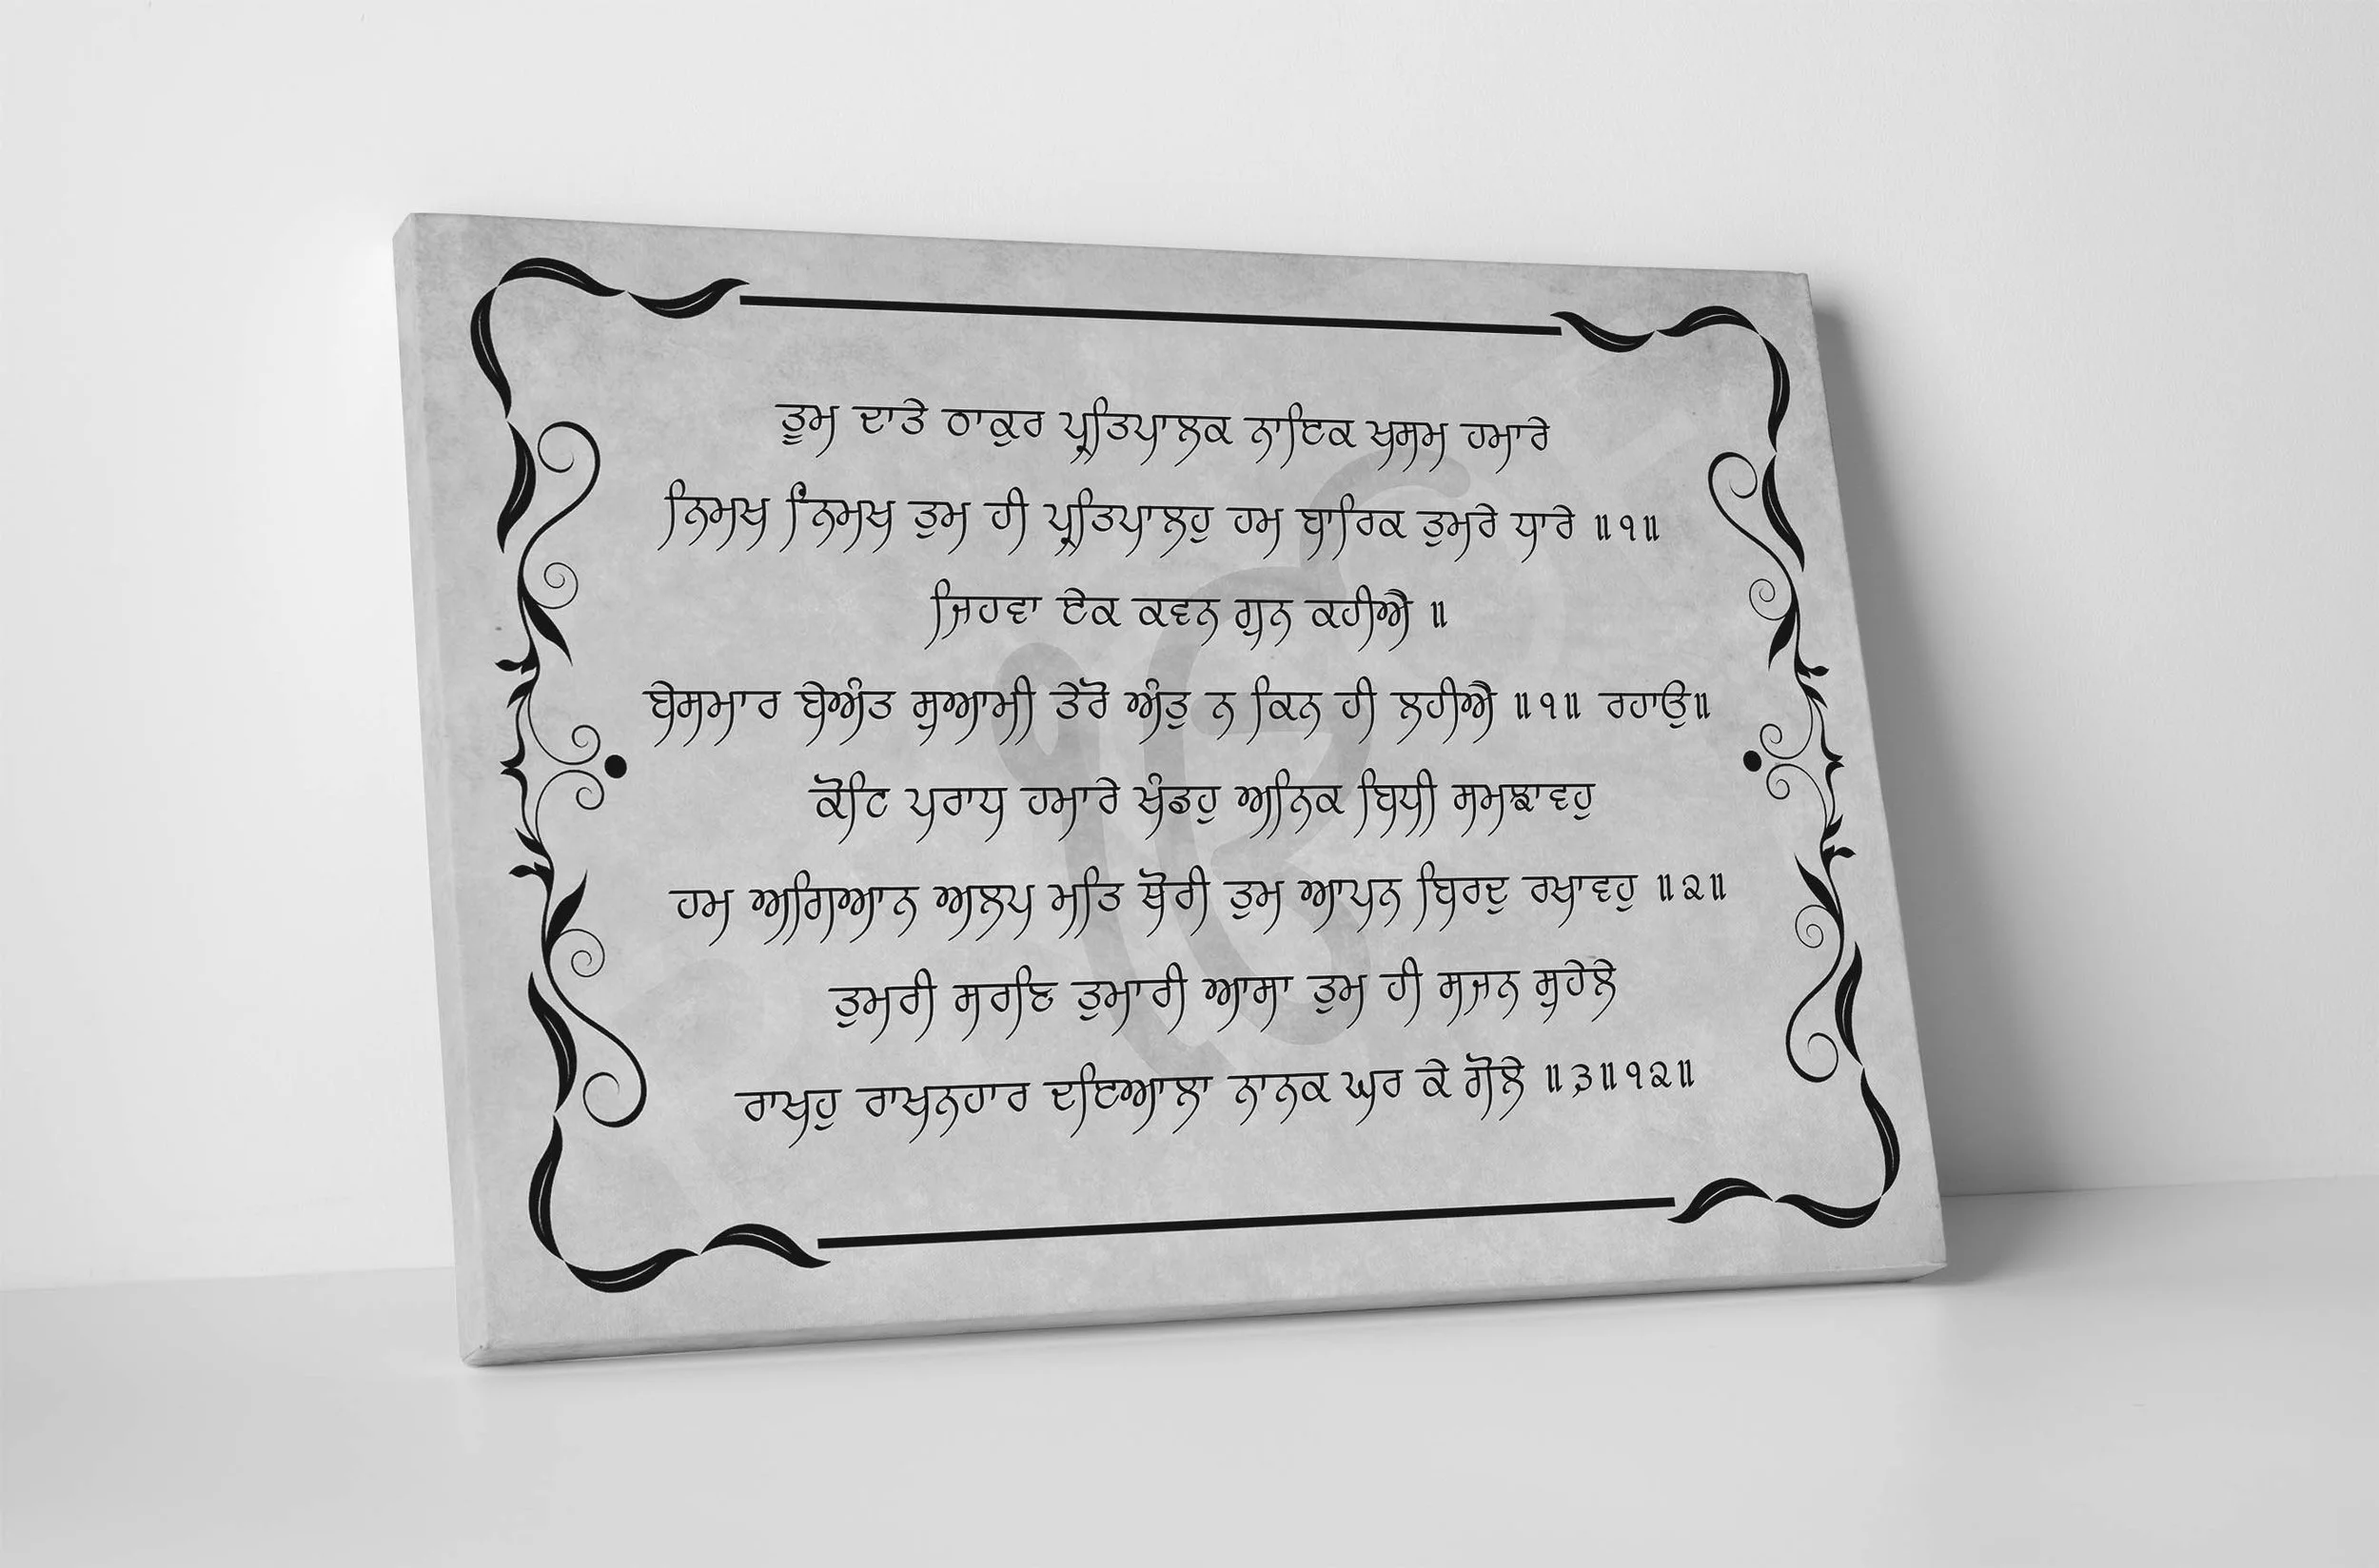 ਤੂਮ ਦਾਤੇ ਠਾਕੁਰ ਪ੍ਰਤਿਪਾਲਕ ਨਾਇਕ ਖਸਮ ਹਮਾਰੇ
ਨਿਮਖ ਨਿੰਮਖ ਤੁਮ ਹੀ ਪ੍ਰਤਿਪਾਲਹੁ ਹਮ ਬਾਰਿਕ ਤੁਮਰੇ ਧਾਰੇ ॥੧॥
ਜਿਹਵਾ ਏਕ ਕਵਨ ਗੁਨ ਕਹੀਐ ॥
ਬੇਸੁਮਾਰ ਬੇਅੰਤ ਸੁਆਮੀ ਤੇਰੋ ਅੰਤੁ ਨ ਕਿਨ ਹੀ ਲਹੀਐ ॥੧॥ ਰਹਾਉ॥
ਕੋਟਿ ਪਰਾਧ ਹਮਾਰੇ ਖੰਡਹੁ ਅਨਿਕ ਬਿਧੀ ਸਮਝਾਵਹੁ
ਹਮ ਅਗਿਆਨ ਅਲਪ ਮਤਿ ਥੋਰੀ ਤੁਮ ਆਪਨ ਬਿਰਦੁ ਰਖਾਵਹੁ ॥੨॥
ਤੁਮਰੀ ਸਰਣਿ ਤੁਮਾਰੀ ਆਸਾ ਤੁਮ ਹੀ ਸਜਨ ਸੁਹੇਲੇ
ਰਾਖਹੁ ਰਾਖਨਹਾਰ ਦਇਆਲਾ ਨਾਨਕ ਘਰ ਕੇ ਗੋਲੇ ॥੩॥੧੨॥